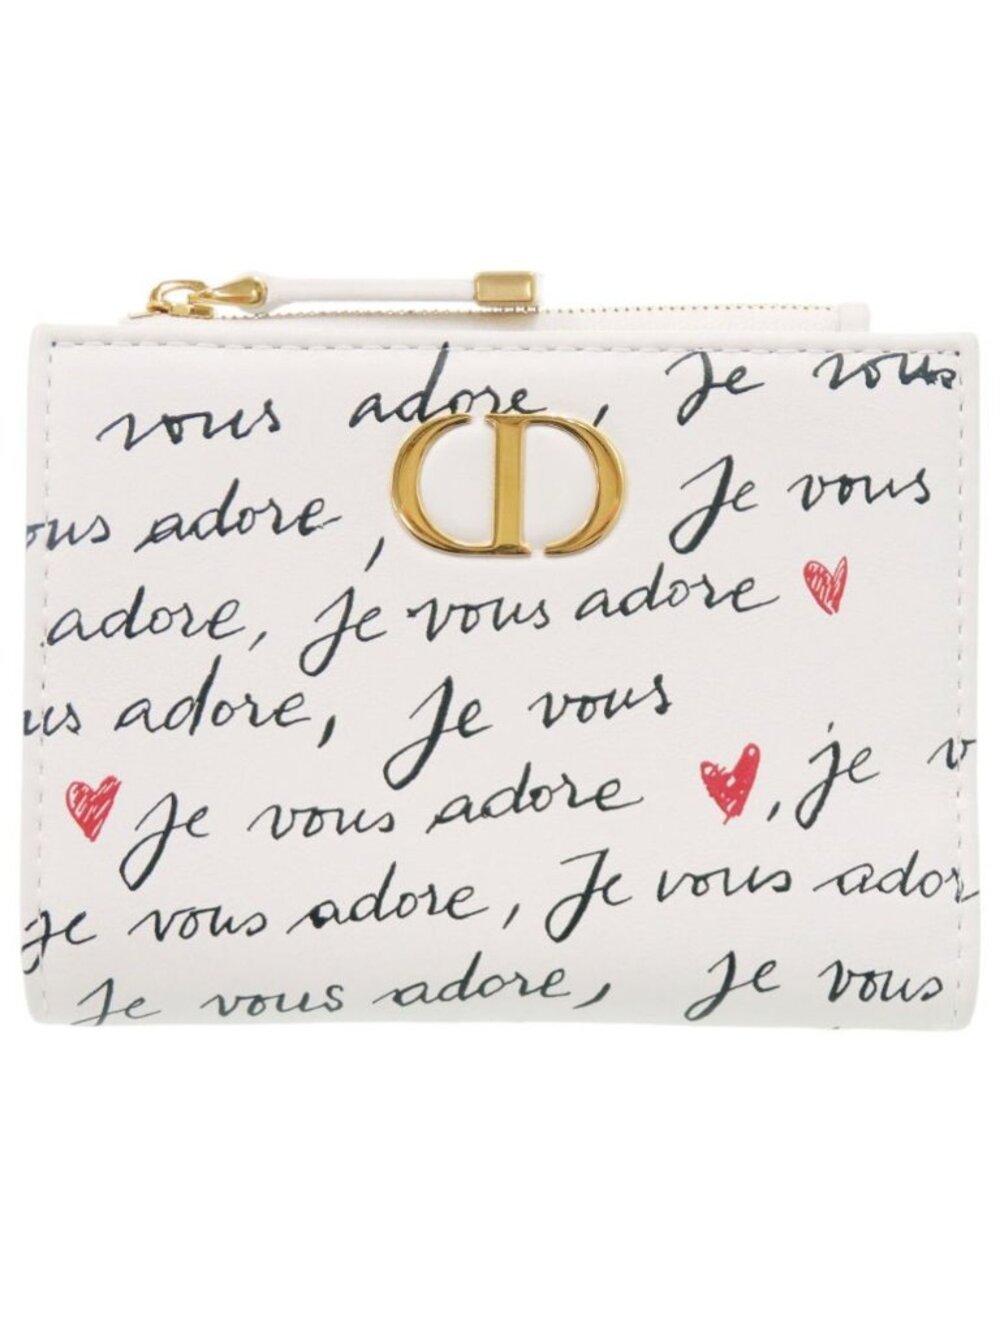 vous adore, Je vous
ous adore, Je vous
adore, Je vous adore
us adore, Je vous
Je vous adore, je v
je vous adore, Je vous ador
Je vous adore, Je vous
CD